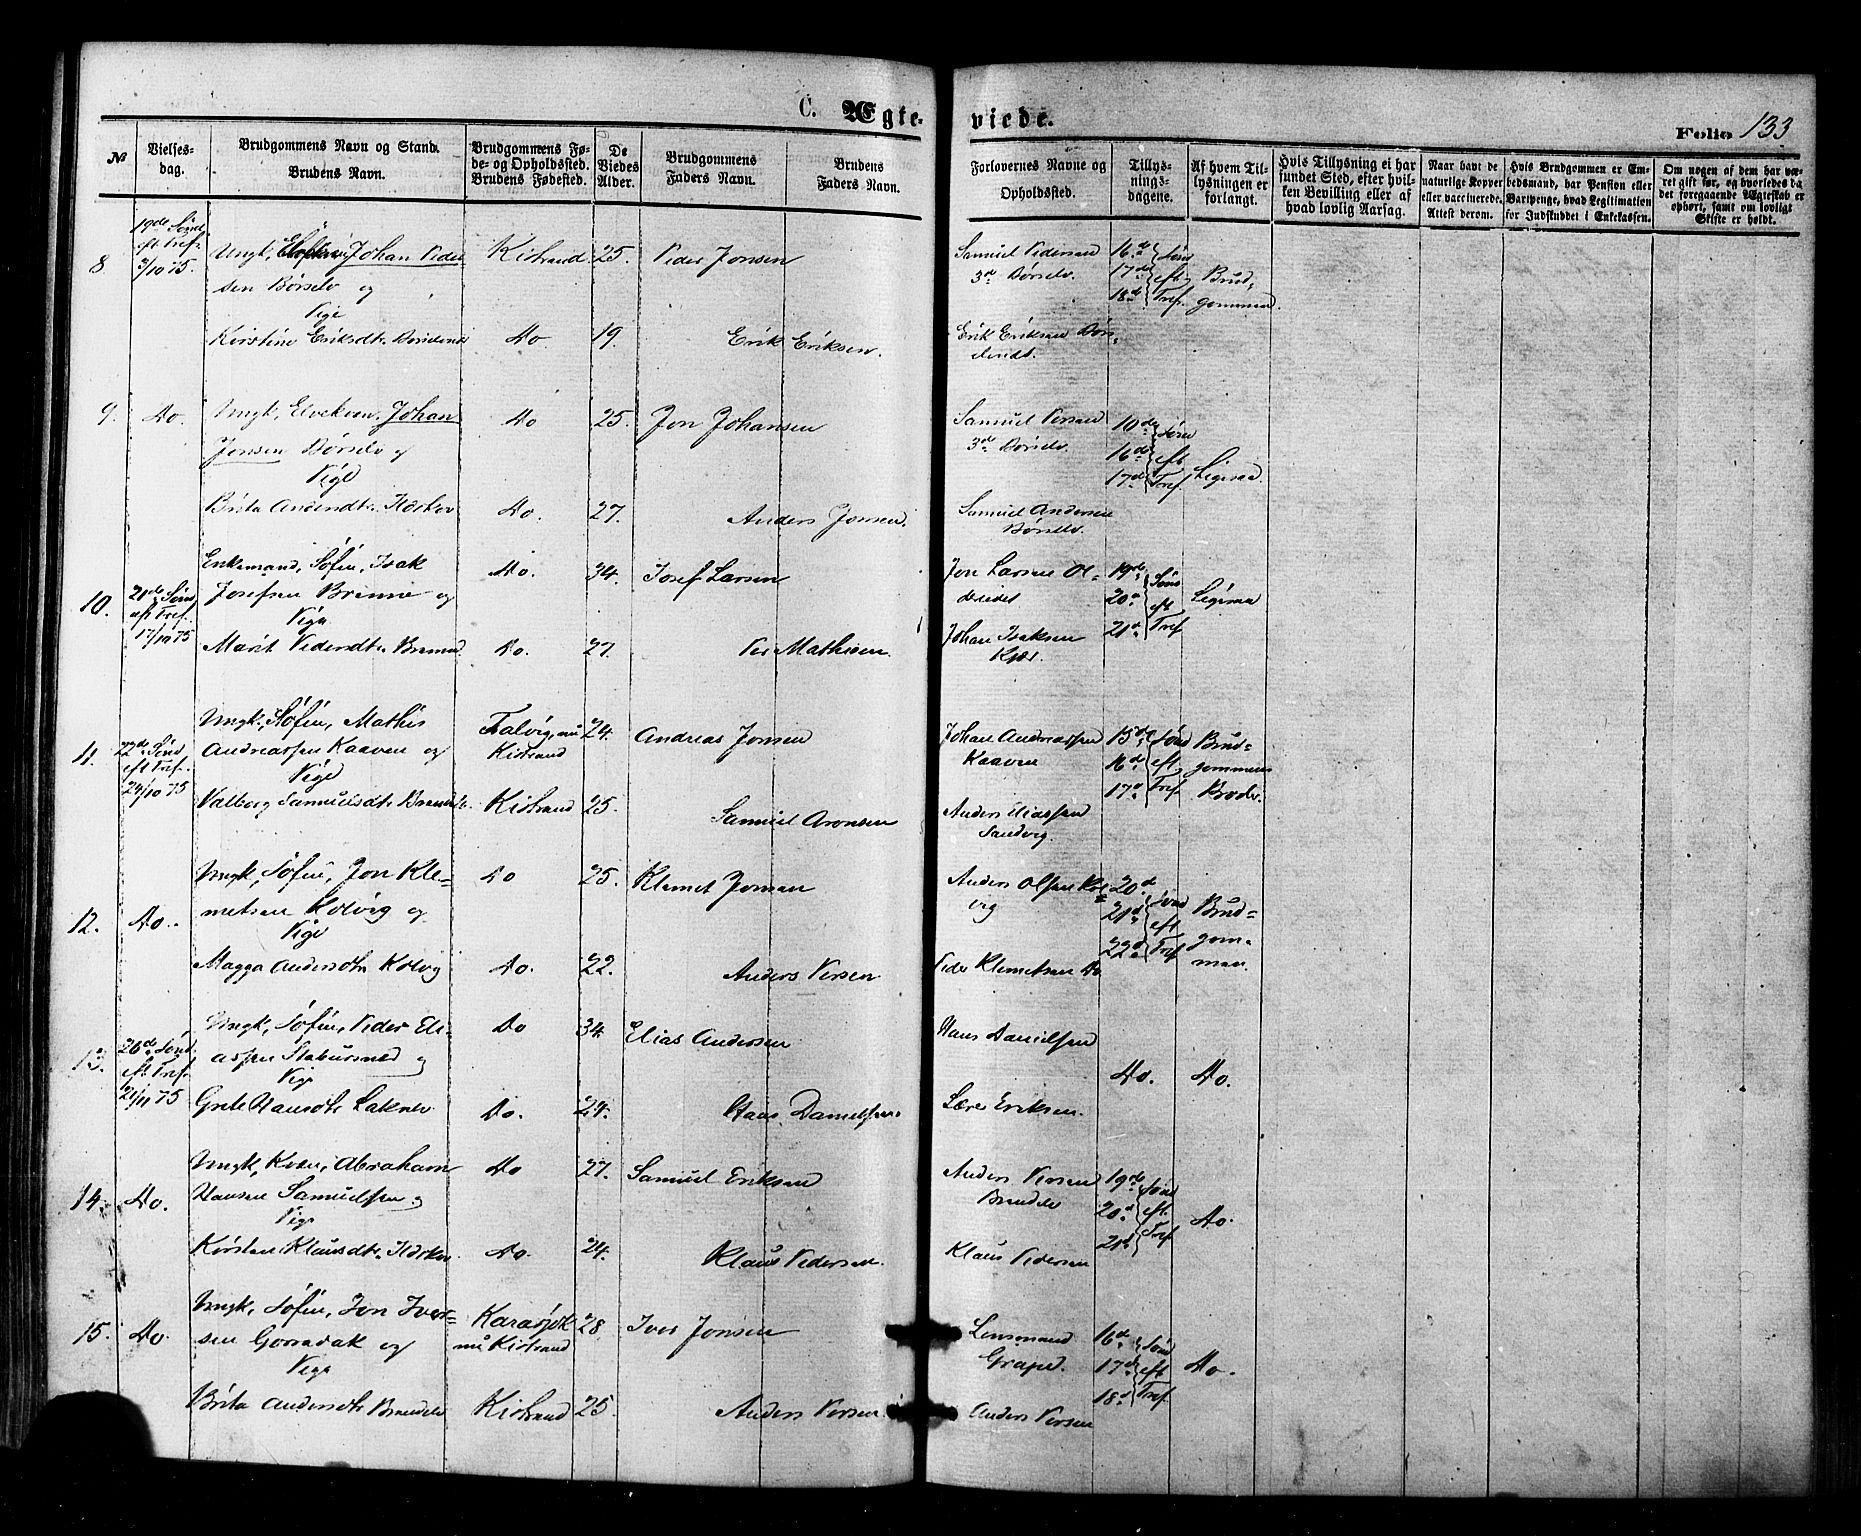 C. Ægte-
viede.
Folio 133
№
Vielses-
dag.
Brudgommens Navn og Stand.
Brudens Navn.
Brudgommens Fø-
de- og Opholdssted.
Brudens Fødested.
De
Viedes
Alder.
Brudgommens
Faders Navn.
Brudens
Faders Navn.
Forlovernes Navne og
Opholdssted.
Tillys-
nings-
dagene.
Af hvem Til-
lysningen er
forlangt.
Hvis Tillysning ei har
fundet Sted, efter hvil-
ken Bevilling eller af
hvad lovlig Aarsag.
Naar havt de
naturlige Kopper
eller vaccinerede.
Attest derom.
Hvis Brudgommen er Em-
bedsmand, har Pension eller
Vartpenge, hvad Legitimation
for Indskuddet i Enkekassen.
Om nogen af dem har væ-
ret gift før, og hvorledes da
det foregaaende Ægteskab er
ophørt, samt om lovligt
Skifte er holdt.
8
19de Sønd
eft Tref.
3/10 75.
Ungk, Johan Peder
sen Børselv og
Pige
Kirstine Eriksdtr
Kistrand 25. Peder Jonsen
Do 19. Erik Eriksen.
Samuel Pedersen
3d Børselv.
Erik Eriksen Bør-
16de
17de
18de
Sønd
eft
Tref.
Brud-
gommen
9. Do.
Ungk, Elvekvæn, Johan
Jonsen Børselv og
Pige
Brita Andersdtr
Do 25. Jon Johansen
Do. 27. Anders Jonsen.
Samuel Persen
3de Børselv.
Samuel Andersen
Børselv.
10de
16de
17de
Sønd
eft
Tref.
Ligesaa.
10.
21de Sønd
eft Tref.
17/10 75
Enkemand, Søfin, Isak
Josefsen Brenne og
Pige
Marit Pedersdtr
Do. 34. Josef Larsen
Do. 27. Per Mathisen.
Jon Larsen Ol-
Johan Isaksen
Kjær.
19de
20de
21de
Sønd
eft
Tref
Ligesaa
11.
22de Sønd
eft Tref.
24/10 75
Ungk, Søfin, Mathis
Andreassen Kaaven og
Pige
Valborg Samuelsdtr
Talvig, nu
Kistrand
24. Andreas Jonsen
Kistrand 25. Samuel Aronsen
Johan Andreassen
Kaaven
Anders Eliassen
Sandvig.
15de
16de
17de
Sønd
eft
Tref.
Brud-
gommens
Broder.
12. Do.
Ungk, Søfin, Jon Kle-
metsen Kolvig og
Pige
Magga Andersdtr Kolvig
Do 25. Klemet Jonsen
Do. 22. Anders Persen
Anders Olsen Kol-
vig
Peder Klemetsen Do.
20de
21de
22de
Sønd
eft
Tref
Brud-
gom-
men.
13.
26de Sønd
eft Tref.
21/11 75
Ungk, Søfin, Peder Eli-
assen Staburnes og
Pige
Grete Hansdtr Lakselv
Do 34. Elias Andersen
Do. 24. Hans Danielsen
Hans Danielsen
Lars Eriksen.
Do. Do.
14. Do.
Ungk, Kvæn, Abraham
Hansen Samuelsen og
Pige
Kirsten Klausdtr
Do 27. Samuel Eriksen
Do. 24. Klaus Pedersen.
Anders Persen
Brendelv
Klaus Pedersen
19de
20de
21de
Sønd
eft.
Tref
Do.
15. Do.
Ungk, Søfin, Jon Iver-
sen Gorradak og
Pige
Brita Andersdtr Brendelv
Karasjok
nu Kistrand
28. Iver Jonsen
Kistrand 25. Anders Persen
Lensmand
Grape.
Anders Persen
16de
17de
18de
Sønd
eft
Tref
Do.